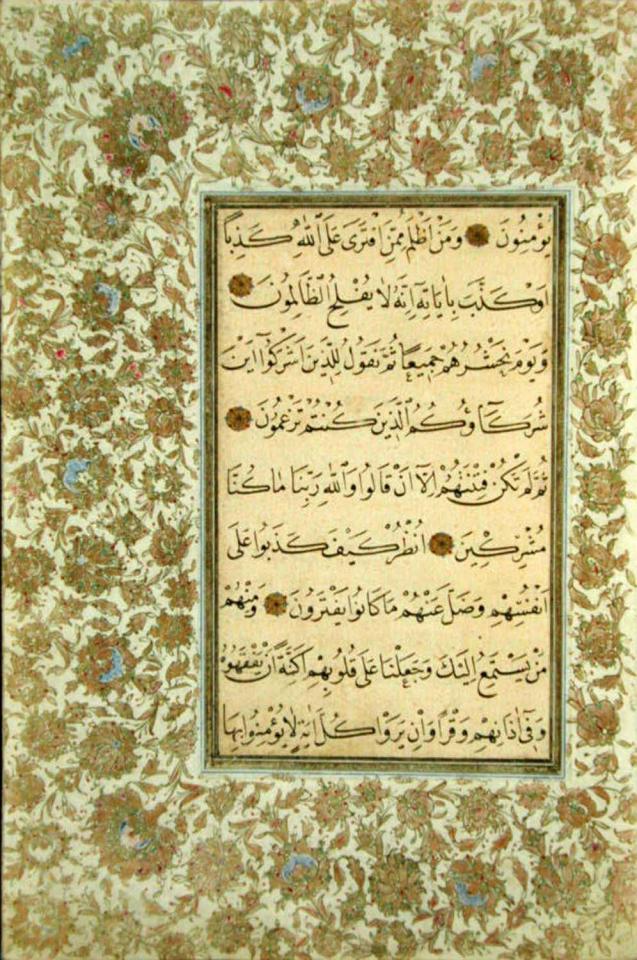 يُؤْمِنُونَ وَمَنْ اَظْلَمُ مِمَّنِ افْتَرٰى عَلَى اللّٰهِ كَذِبًا
اَوْ كَذَّبَ بِاٰيَاتِهٖ اِنَّهُ لَا يُفْلِحُ الظَّالِمُونَ
وَيَوْمَ نَحْشُرُهُمْ جَمِيعًا ثُمَّ نَقُولُ لِلَّذِينَ اَشْرَكُوٓا اَيْنَ
شُرَكَآؤُكُمُ الَّذِينَ كُنْتُمْ تَزْعُمُونَ
ثُمَّ لَمْ تَكُنْ فِتْنَتُهُمْ اِلَّآ اَنْ قَالُوا وَاللّٰهِ رَبِّنَا مَا كُنَّا
مُشْرِكِينَ اُنْظُرْ كَيْفَ كَذَبُوا عَلٰٓى
اَنْفُسِهِمْ وَضَلَّ عَنْهُمْ مَا كَانُوا يَفْتَرُونَ وَمِنْهُمْ
مَنْ يَسْتَمِعُ اِلَيْكَ وَجَعَلْنَا عَلٰى قُلُوبِهِمْ اَكِنَّةً اَنْ يَفْقَهُوهُ
وَفِٓى اٰذَانِهِمْ وَقْرًا وَاِنْ يَرَوْا كُلَّ اٰيَةٍ لَا يُؤْمِنُوا بِهَا